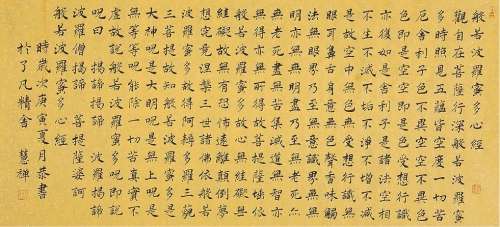 般若波羅蜜多心經
觀自在菩薩行深般若波羅蜜
多時照見五蘊皆空度一切苦
厄舍利子色不異空空不異色
色即是空空即是色受想行識
亦復如是舍利子是諸法空相
不生不滅不垢不淨不增不減
是故空中無色無受想行識無
眼耳鼻舌身意無色聲香味觸
法無眼界乃至無意識界無無
明亦無無明盡乃至無老死亦
無老死盡無苦集滅道無智亦
無得以無所得故菩提薩埵依
般若波羅蜜多故心無罣礙無
罣礙故無有恐怖遠離顛倒夢
想究竟涅槃三世諸佛依般若
波羅蜜多故得阿耨多羅三藐
三菩提故知般若波羅蜜多是
大神呪是大明呪是無上呪是
無等等呪能除一切苦真實不
虛故說般若波羅蜜多呪即說
呪曰 揭諦揭諦 波羅揭諦
波羅僧揭諦 菩提薩婆訶
般若波羅蜜多心經
時歲次庚寅夏月恭書
於了凡精舍 慧禪